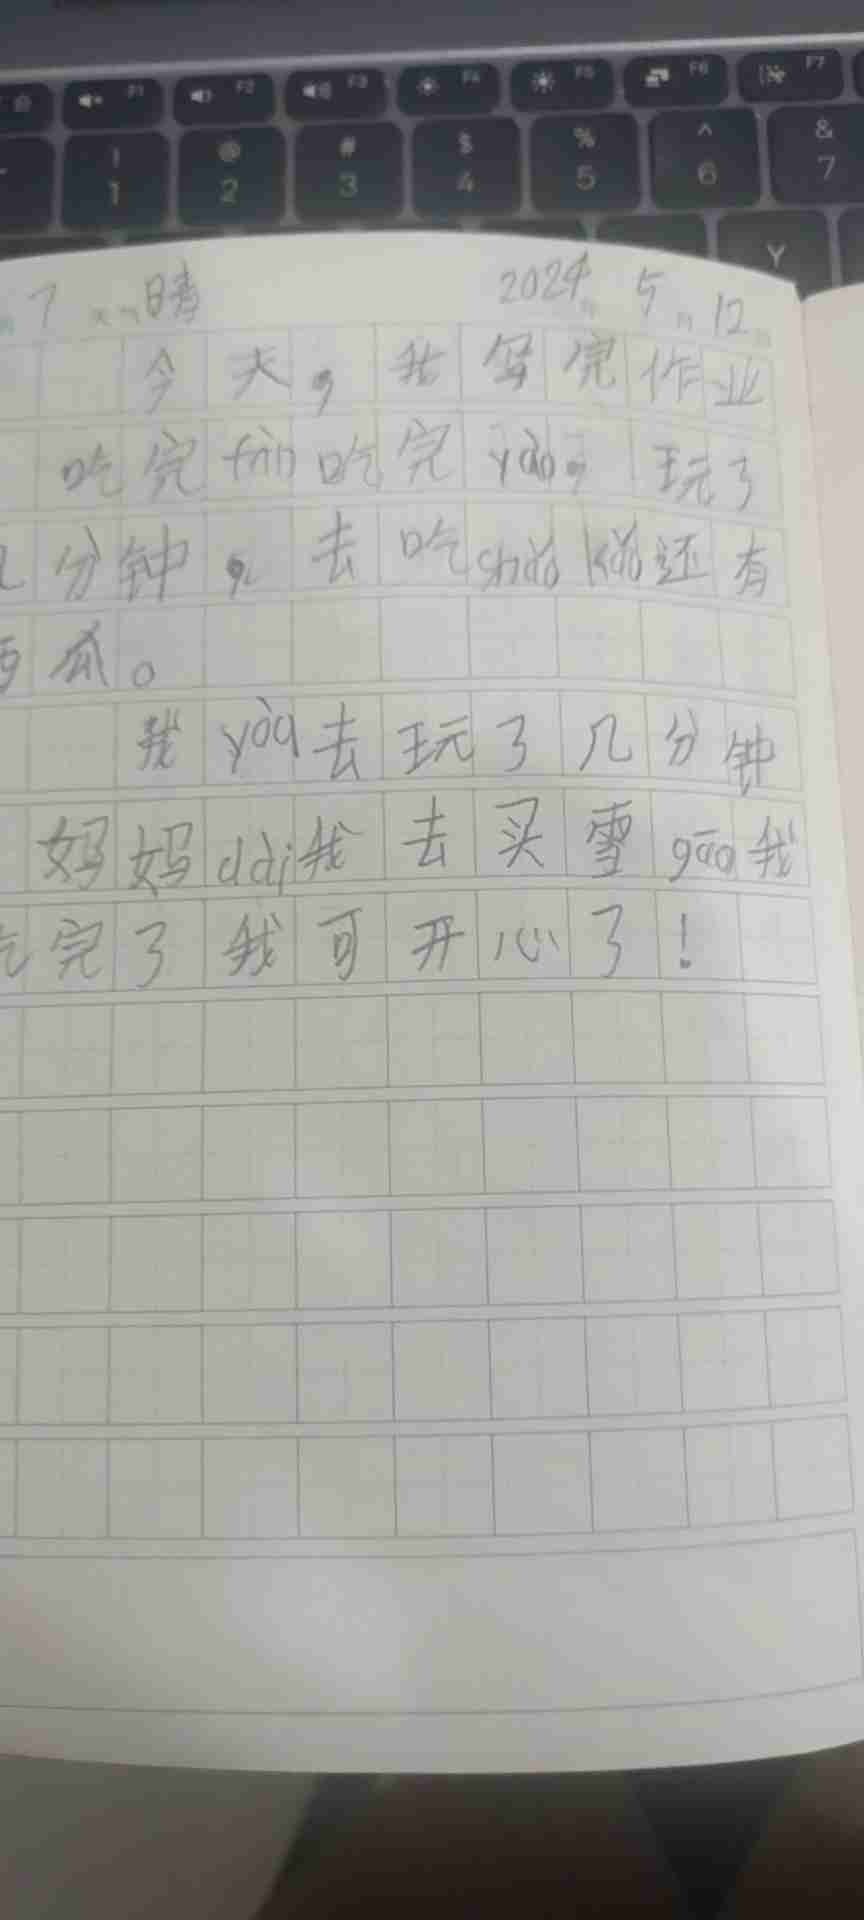 F1 F2 F3 F4 F5 F6 F7
! @ # $ % ^ &
1 2 3 4 5 6 7
Y
7 晴 2024年 5月 12日
今天，我写完作业
吃完fàn吃完yào，玩了
分钟，去吃shāo kǎo还有
西瓜。
我yòu去玩了几分钟
妈妈dài我去买雪gāo我
吃完了我可开心了！